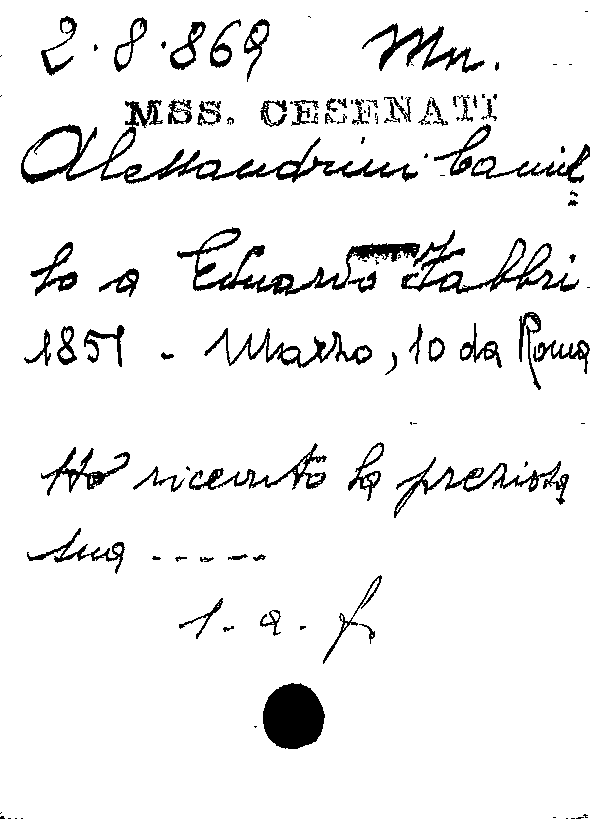 2.8.869 Mn.
MSS. CESENATI
Alessandrini Camil=
lo a Eduardo Fabbri
1851 - Marzo, 10 da Roma
Ho ricevuto la preziosa
sua -----
l. a. f.